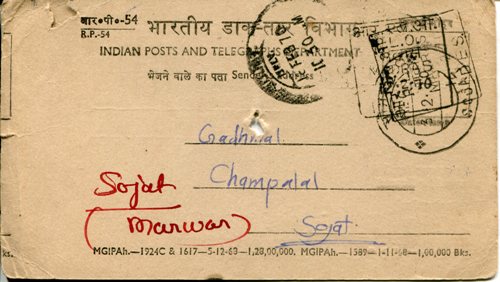 बार॰पी॰-54
R.P.-54
भारतीय डाक-तार विभाग
INDIAN POSTS AND TELEGRAPHS DEPARTMENT
भेजने वाले का पता Sender's Address
FEB 70
Gadhmal
Champalal
Sojat
Sojat
(Marwar)
ks.
MGIPAh.—1924C & 1617—5-12-68—1,28,00,000. MGIPAh.—1589—1-11-68—1,00,000 Bks.